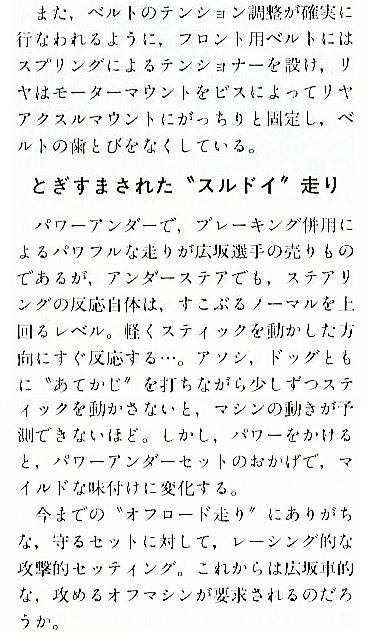 また，ベルトのテンション調整が確実に
行なわれるように，フロント用ベルトには
スプリングによるテンショナーを設け，リ
ヤはモーターマウントをビスによってリヤ
アクスルマウントにがっちりと固定し，ベ
ルトの歯とびをなくしている。
とぎすまされた〝スルドイ〟走り
パワーアンダーで，ブレーキング併用に
よるパワフルな走りが広坂選手の売りもの
であるが，アンダーステアでも，ステアリ
ングの反応自体は，すこぶるノーマルを上
回るレベル。軽くスティックを動かした方
向にすぐ反応する…。アソシ，ドッグとも
に〝あてかじ〟を打ちながら少しずつステ
ィックを動かさないと，マシンの動きが予
測できないほど。しかし，パワーをかける
と，パワーアンダーセットのおかげで，マ
イルドな味付けに変化する。
今までの〝オフロード走り〟にありがち
な，守るセットに対して，レーシング的な
攻撃的セッティング。これからは広坂車的
な，攻めるオフマシンが要求されるのだろ
うか。